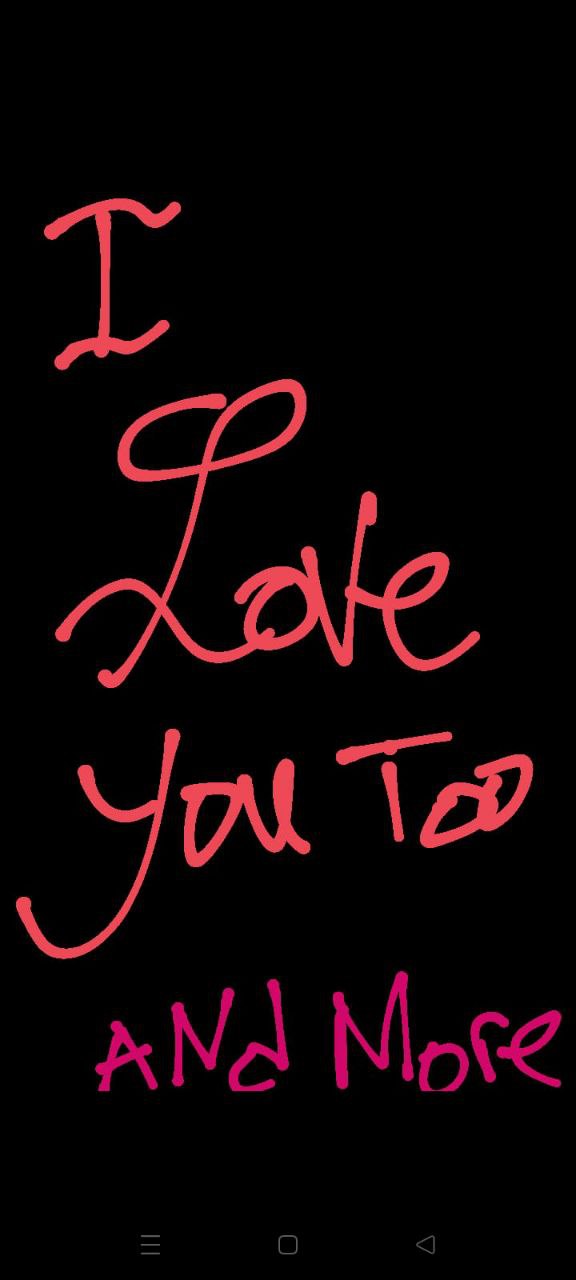 I
Love
you Too
ANd More